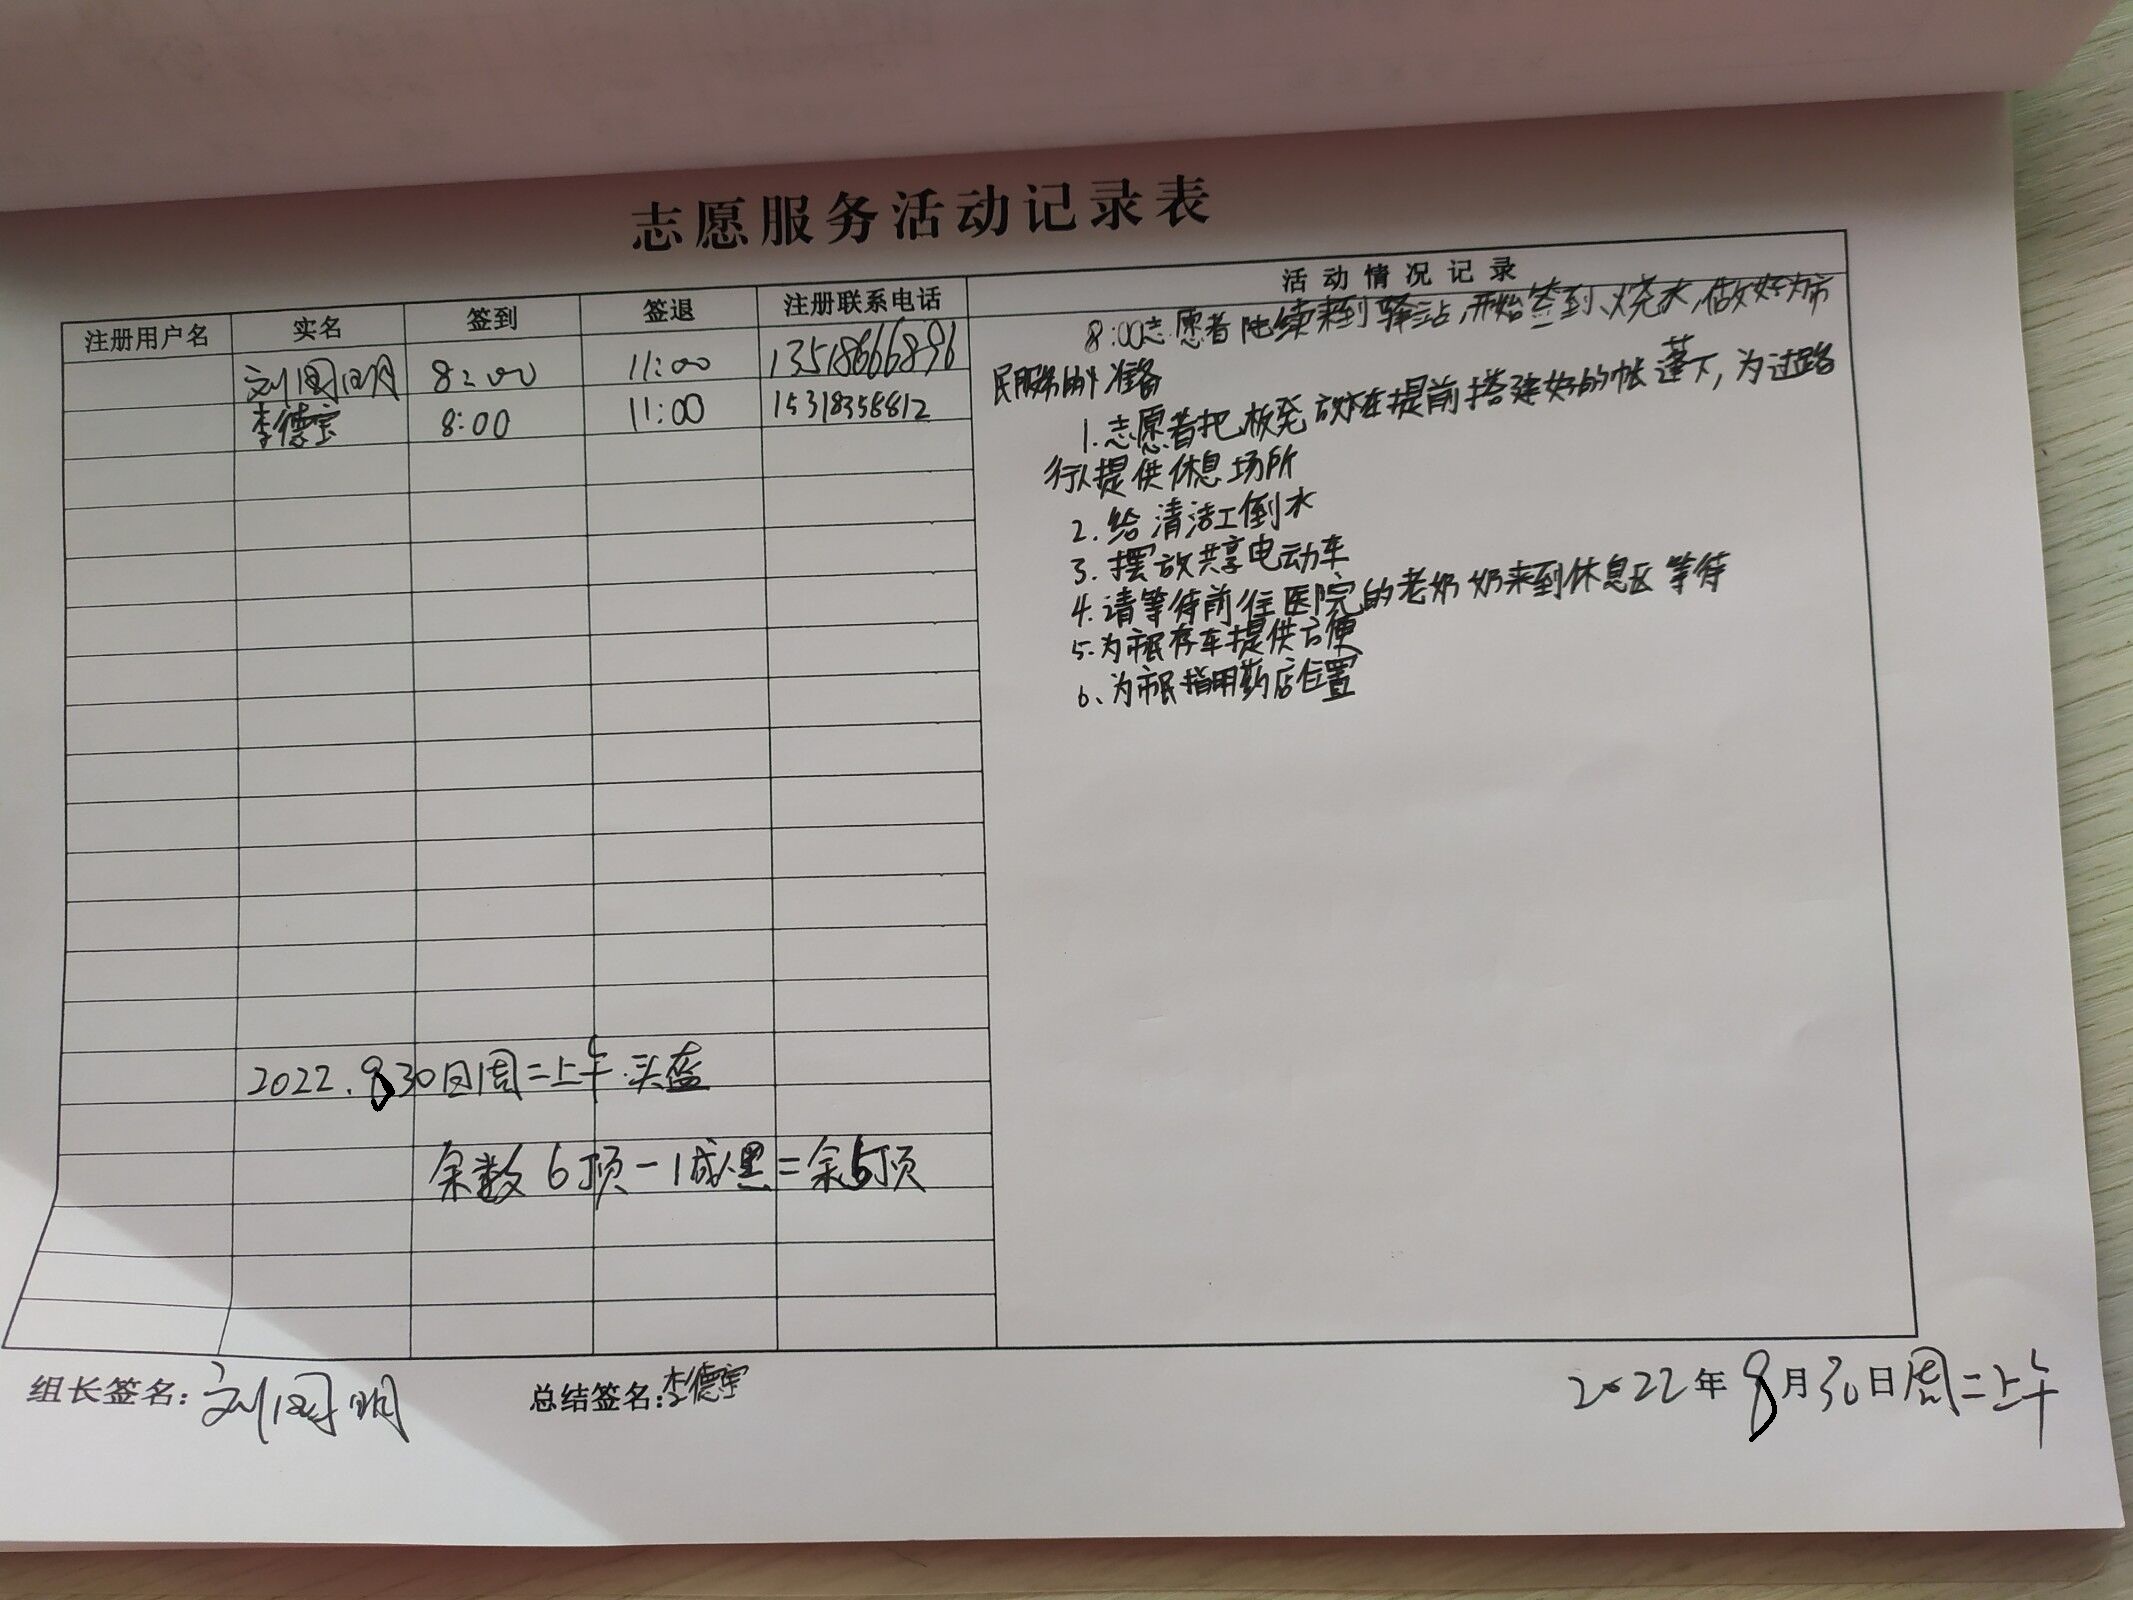 志愿服务活动记录表
注册用户名 实名 签到 签退 注册联系电话 活动情况记录
刘国明 8:00 11:00 13518666896
李德宝 8:00 11:00 15318358812
8:00志愿者陆续来到驿站,开始签到、烧水,做好为市
民服务的准备
1.志愿者把板凳放在提前搭建好的帐蓬下,为过路
行人提供休息场所
2.给清洁工倒水
3.摆放共享电动车
4.请等待前往医院的老奶奶来到休息区等待
5.为市民存车提供方便
6、为市民指明药店位置
2022.8.30日周二上午.头盔
余数6顶-1成黑=余5顶
组长签名:刘国明 总结签名:李德宝 2022年8月30日周二上午